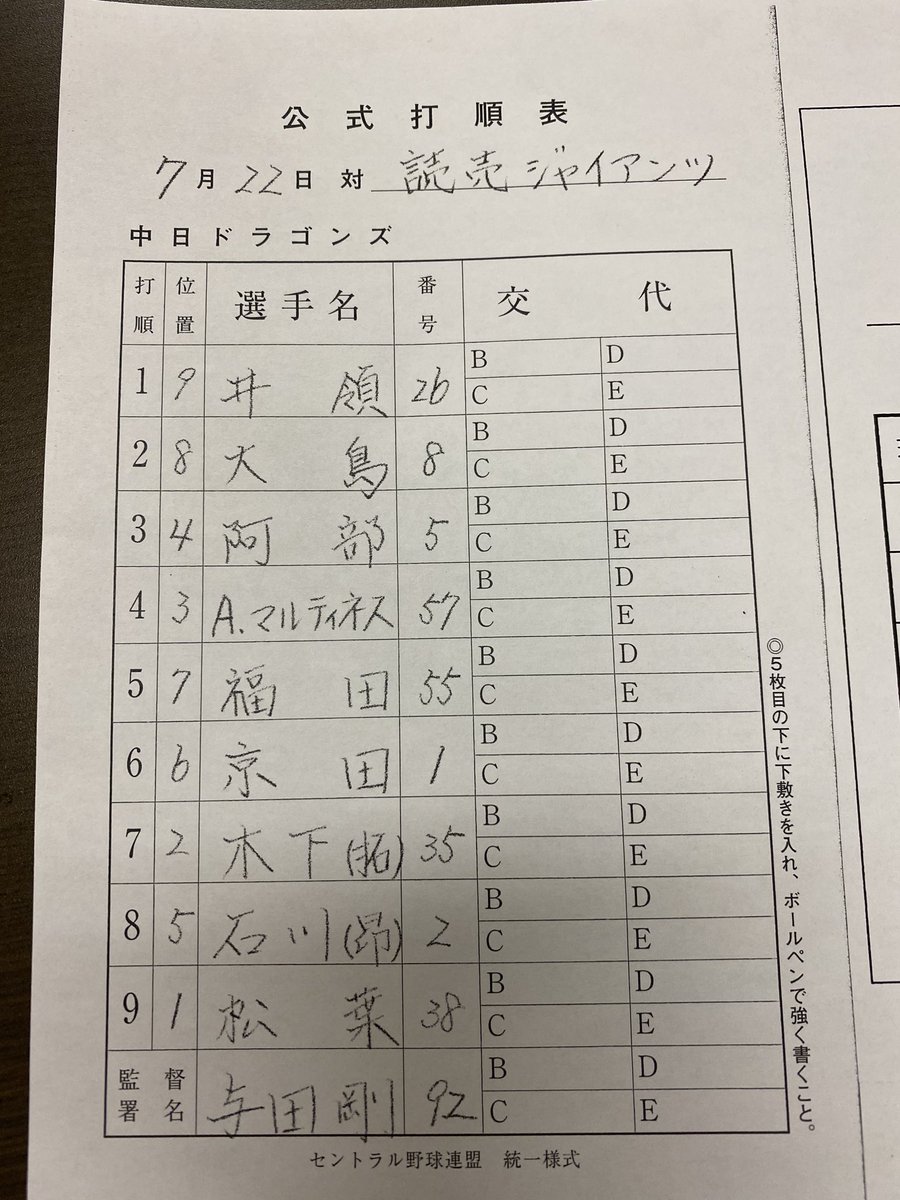 公式打順表
7月22日 対 読売ジャイアンツ
中日ドラゴンズ
打順 位置 選手名 番号 交代
1 9 井領 26 B D C E
2 8 大島 8 B D C E
3 4 阿部 5 B D C E
4 3 A.マルティネス 57 B D C E
5 7 福田 55 B D C E
6 6 京田 1 B D C E
7 2 木下(拓) 35 B D C E
8 5 石川(昂) 2 B D C E
9 1 松葉 38 B D C E
監督署名 与田剛 92 B D C E
セントラル野球連盟 統一様式
◎5枚目の下に下敷きを入れ、ボールペンで強く書くこと。